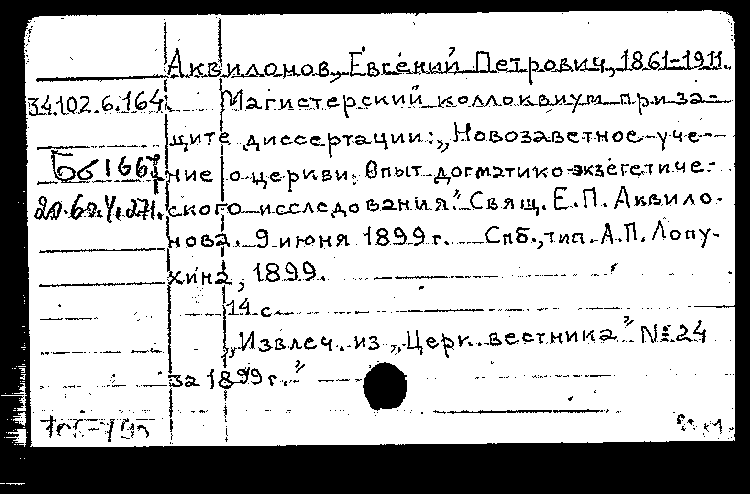 Аквилонов, Евгений Петрович, 1861-1911.
34.102.6.164. Магистерский коллоквиум при за-
щите диссертации: „Новозаветное уче-
Бб 1667 ние о церкви. Опыт догматико-экзегетиче-
20.62.4.271. ского исследования." Свящ. Е.П. Аквило-
нова. 9 июня 1899 г. Спб., тип. А.П. Лопу-
хина, 1899.
14 с.
„Извлеч. из „Церк. вестника" № 24
за 1899 г."